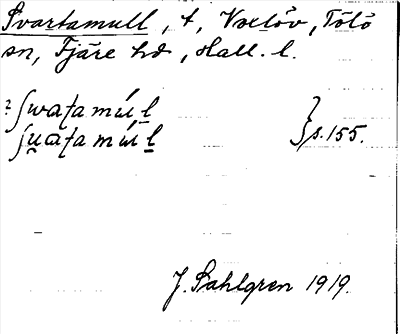 Svartamull, t, Voxlöv, Tölö
sn, Fjäre hd, Hall. l.
? ʃwaʈa múl̲
ʃu̲aʈa múl̲ } s. 155.
J. Sahlgren 1919.